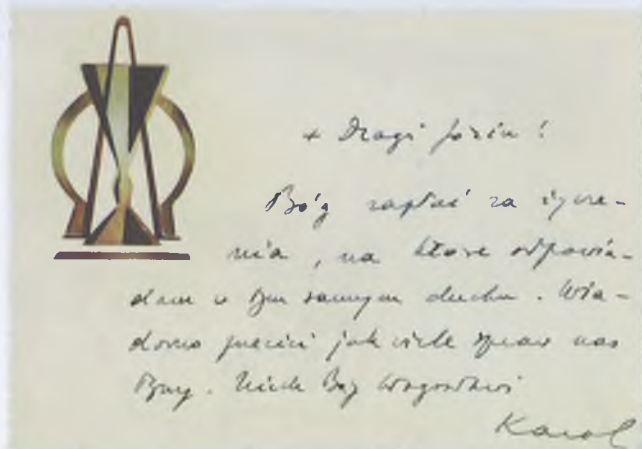 + Drogi Józiu!
Bóg zapłać za życze-
nia, na które odpowia-
dam w tym samym duchu. Wia-
domo przecież jak wiele spraw nas
łączy. Niech Bóg błogosławi
Karol